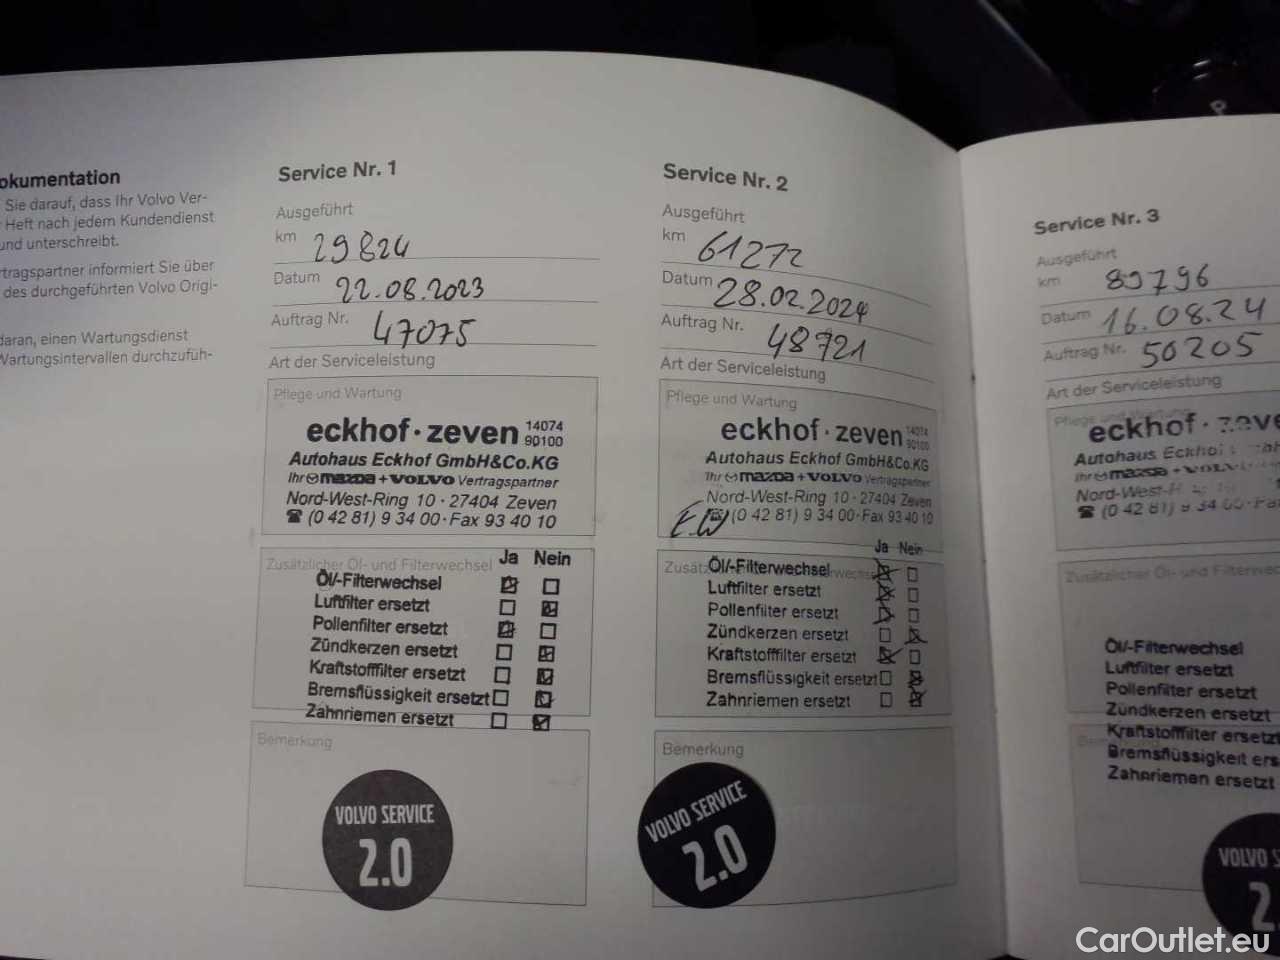 okumentation
Sie darauf, dass Ihr Volvo Ver-
Heft nach jedem Kundendienst
und unterschreibt.
rtragspartner informiert Sie über
des durchgeführten Volvo Origi-
daran, einen Wartungsdienst
Wartungsintervallen durchzufüh-
Service Nr. 1
Ausgeführt
km 29824
Datum 22.08.2023
Auftrag Nr. 47075
Art der Serviceleistung
Pflege und Wartung
eckhof · zeven 14074
90100
Autohaus Eckhof GmbH&Co.KG
Ihr mazda + VOLVO Vertragspartner
Nord-West-Ring 10 · 27404 Zeven
☎ (0 42 81) 9 34 00 · Fax 93 40 10
Zusätzlicher Öl- und Filterwechsel Ja Nein
Öl/-Filterwechsel
Luftfilter ersetzt
Pollenfilter ersetzt
Zündkerzen ersetzt
Kraftstofffilter ersetzt
Bremsflüssigkeit ersetzt
Zahnriemen ersetzt
Bemerkung
VOLVO SERVICE
2.0
Service Nr. 2
Ausgeführt
km 61272
Datum 28.02.2024
Auftrag Nr. 48721
Art der Serviceleistung
Pflege und Wartung
eckhof · zeven 14074
90100
Autohaus Eckhof GmbH&Co.KG
Ihr mazda + VOLVO Vertragspartner
Nord-West-Ring 10 · 27404 Zeven
☎ (0 42 81) 9 34 00 · Fax 93 40 10
Ja Nein
Öl/-Filterwechsel
Luftfilter ersetzt
Pollenfilter ersetzt
Zündkerzen ersetzt
Kraftstofffilter ersetzt
Bremsflüssigkeit ersetzt
Zahnriemen ersetzt
Bemerkung
VOLVO SERVICE
2.0
Service Nr. 3
Ausgeführt
km 89796
Datum 16.08.24
Auftrag Nr. 50205
Art der Serviceleistung
Pflege und Wartung
eckhof · zeve
Autohaus Eckhof
Ihr mazda + VOLVO
Nord-West-
☎ (0 42 81) 9 34 00 · Fa
Zusätzlicher Öl- und Filterwec
Öl/-Filterwechsel
Luftfilter ersetzt
Pollenfilter ersetzt
Zündkerzen ersetzt
Kraftstofffilter ersetzt
Bremsflüssigkeit ers
Zahnriemen ersetzt
VOLVO S
2
P
CarOutlet.eu